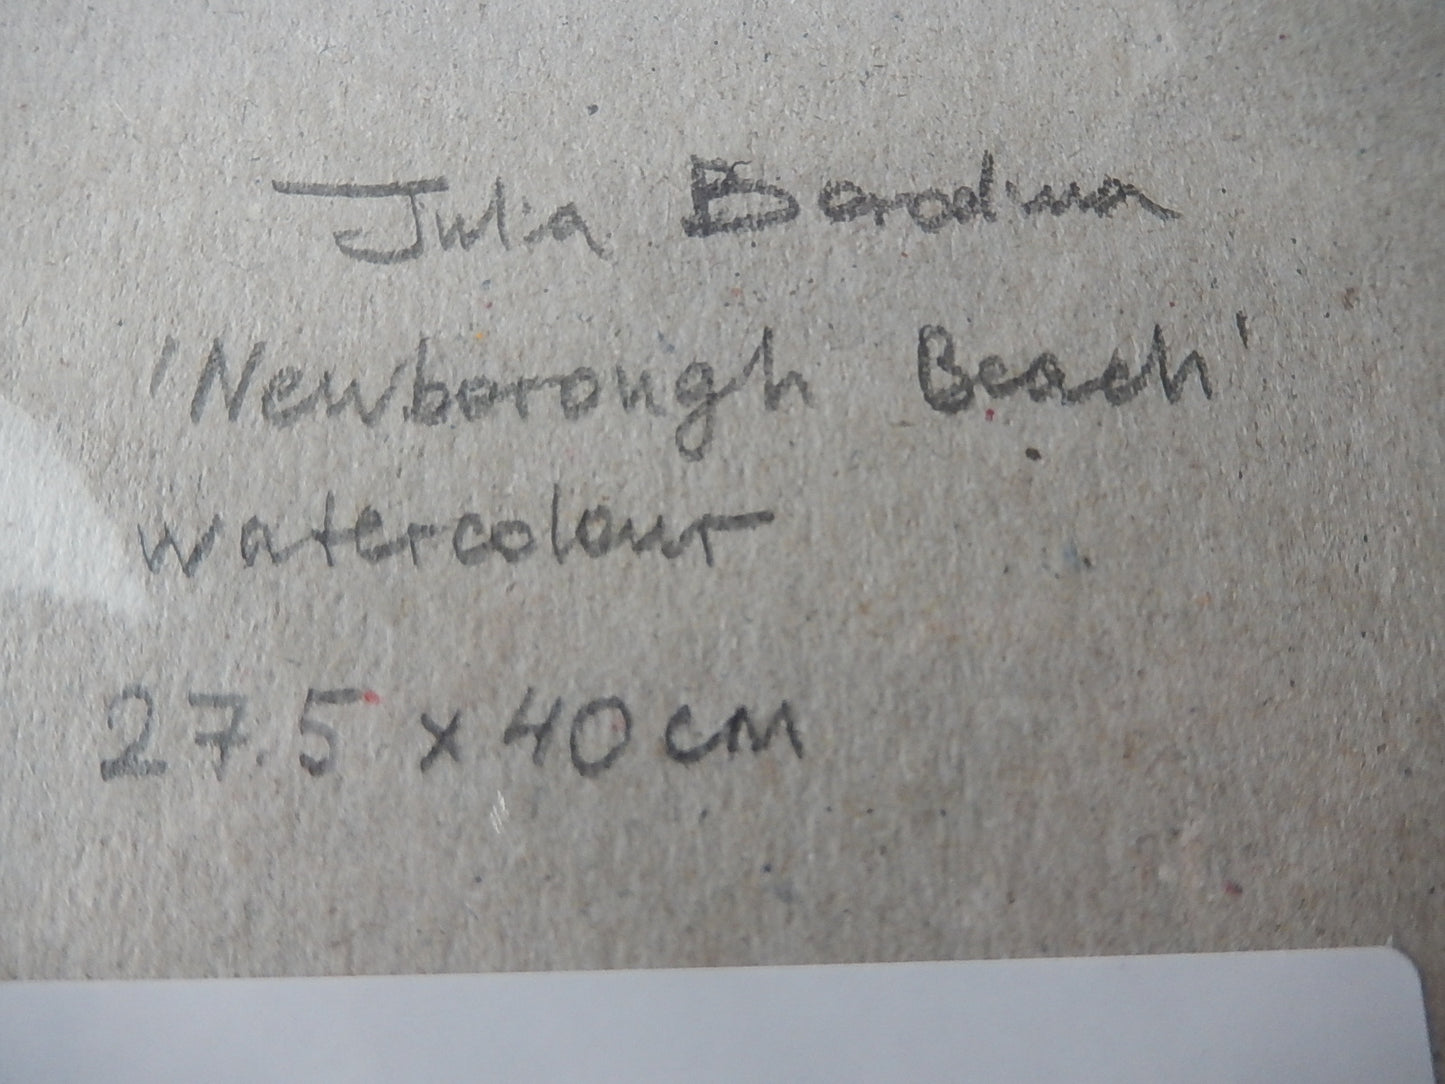 Julia Borodina
'Newborough Beach'
watercolour
27.5 x 40 cm